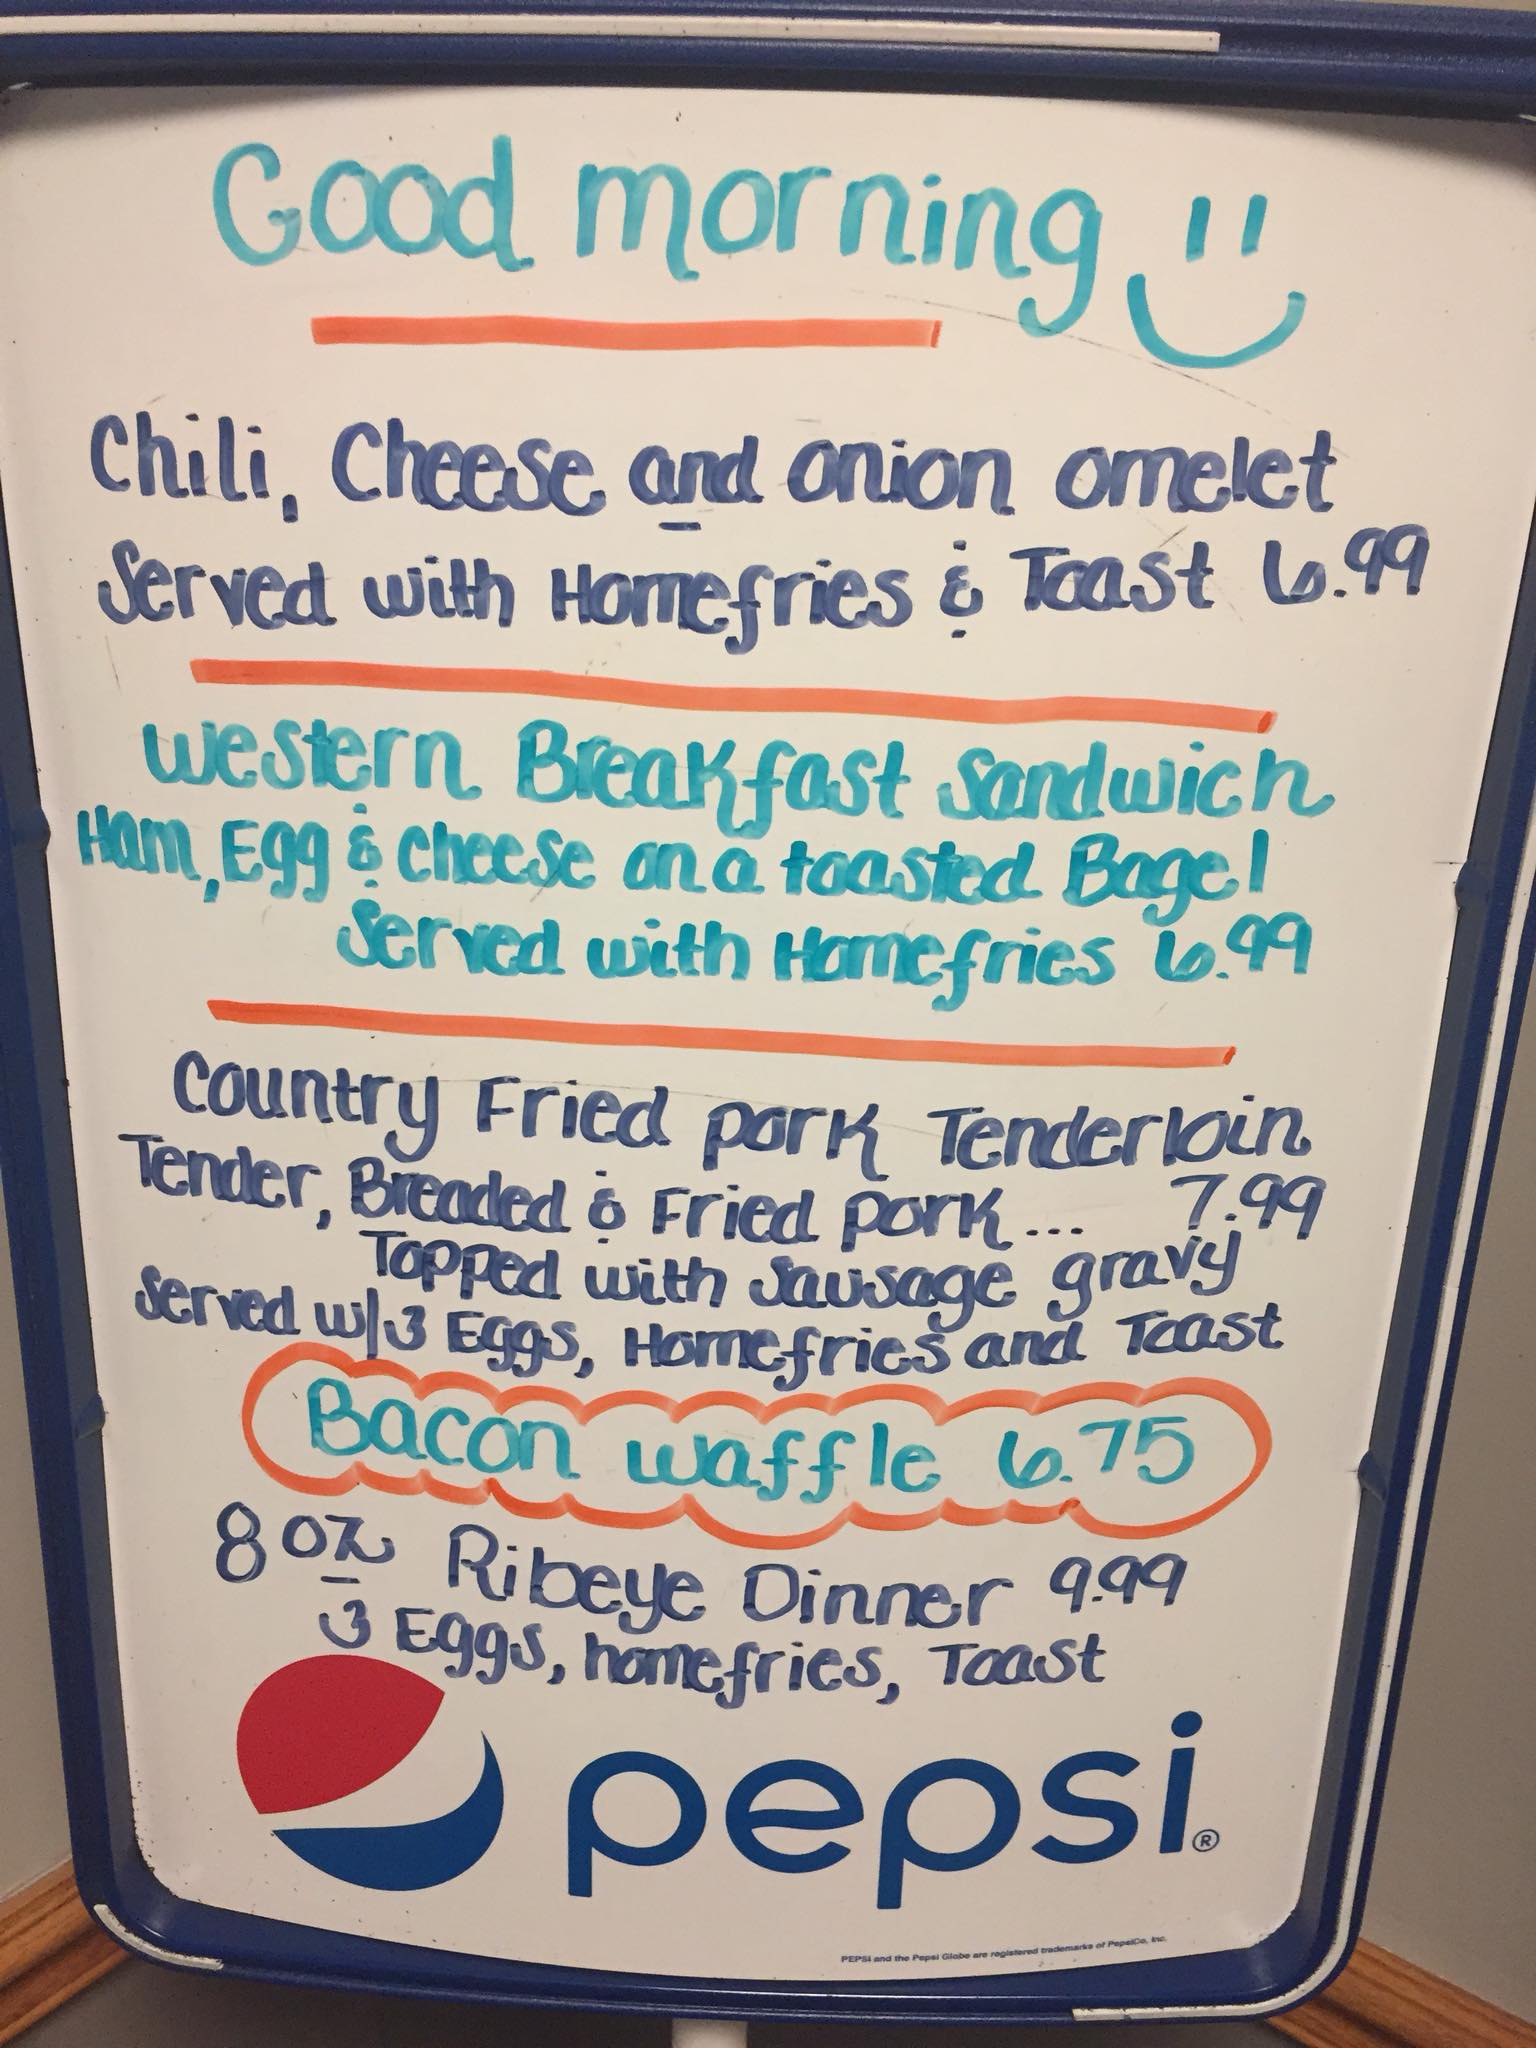 Good morning
Chili, Cheese and onion omelet
Served with Homefries & Toast 6.99
Western Breakfast Sandwich
Ham, Egg & Cheese on a toasted Bagel
Served with Homefries 6.99
Country Fried pork Tenderloin
Tender, Breaded & Fried pork... 7.99
Topped with Sausage gravy
Served w/ 3 Eggs, Homefries and Toast
Bacon waffle 6.75
8 oz Ribeye Dinner 9.99
3 Eggs, homefries, Toast
pepsi®
PEPSI and the Pepsi Globe are registered trademarks of PepsiCo, Inc.